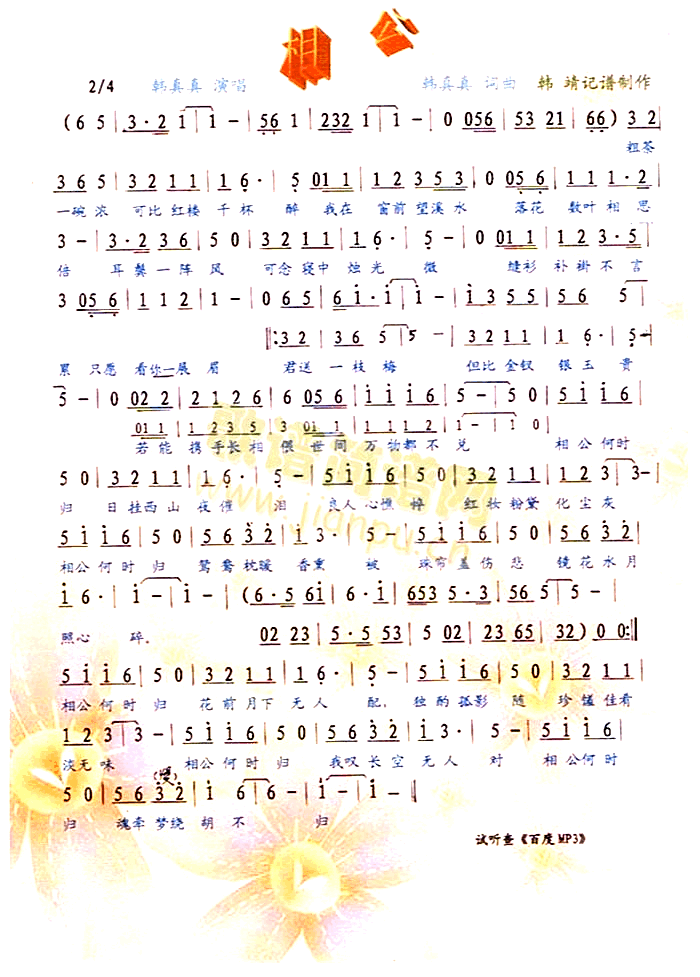 相公
2/4 韩真真 演唱 韩真真 词曲 韩 靖记谱制作
(6 5 | 3·2 1 | 1 - | 56 1 | 232 1 | 1 - | 0 056 | 53 21 | 66) | 3 2
粗茶
3 6 5 | 3 2 1 1 | 1 6· | 5 01 1 | 1 2 3 5 3 | 0 05 6 | 1 1 1·2 |
一碗浓 可比红楼 千杯 醉 我在 窗前望溪水 落花 数叶相思
3 - | 3·2 3 6 | 5 0 | 3 2 1 1 | 1 6· | 5 - | 0 01 1 | 1 2 3·5 |
倍 耳鬓一阵风 可念寝中 烛光 微 缝衫 补褂不言
3 05 6 | 1 1 2 | 1 - | 1 - | 0 6 5 | 6 1· | 1 - | 1 3 5 5 | 5 6 5 |
‖: 3 2 | 3 6 5 | 5 - | 3 2 1 1 | 1 6· | 5 -
累 只愿 看你一展眉 君送 一枝梅 但比金钗 银玉 贵
5 - | 0 02 2 | 2 1 2 6 | 6 05 6 | 1 1 1 6 | 5 - | 5 5 0 | 5 1 1 6 |
01 1 | 1 2 3 5 | 3 01 1 | 1 1 1 2 | 1 - | 1 1 0 |
若能 携手长相 偎 世间 万物都不兑 相公何时
5 0 | 3 2 1 1 | 1 6· | 5 - | 5 1 1 6 | 5 0 | 3 2 1 1 | 1 2 3 | 3 -
归 日挂西山 夜催 泪 良人心憔悴 红妆粉黛 化尘灰
5 1 1 6 | 5 0 | 5 6 3 2 | 1 3· | 5 - | 5 1 1 6 | 5 0 | 5 6 3 2 |
相公何时归 鸳鸯枕暖 香熏 被 珠帘盖伤悲 镜花水月
1 6· | 1 - | 1 - | (6·5 61 | 6 6· | 653 5·3 | 56 5 | 5 - |
照心 碎.
02 23 | 5·5 53 | 5 02 | 23 65 | 32) 0 0 :‖
5 1 1 6 | 5 0 | 3 2 1 1 | 1 6· | 5 - | 5 1 1 6 | 5 0 | 3 2 1 1 |
相公何时归 花前月下 无人 配, 独酌孤影 随 珍馐佳肴
1 2 3 | 3 - | 5 1 1 6 | 5 0 | 5 6 3 2 | 1 3· | 5 - | 5 1 1 6 |
淡无味 相公何时归 我叹长空 无人 对 相公何时
(慢)
5 0 | 5 6 3 2 | 1 6 | 6 - | 1 - | 1 - ‖
归 魂牵梦绕 胡不 归
试听查《百度MP3》
www.jianpu.cn